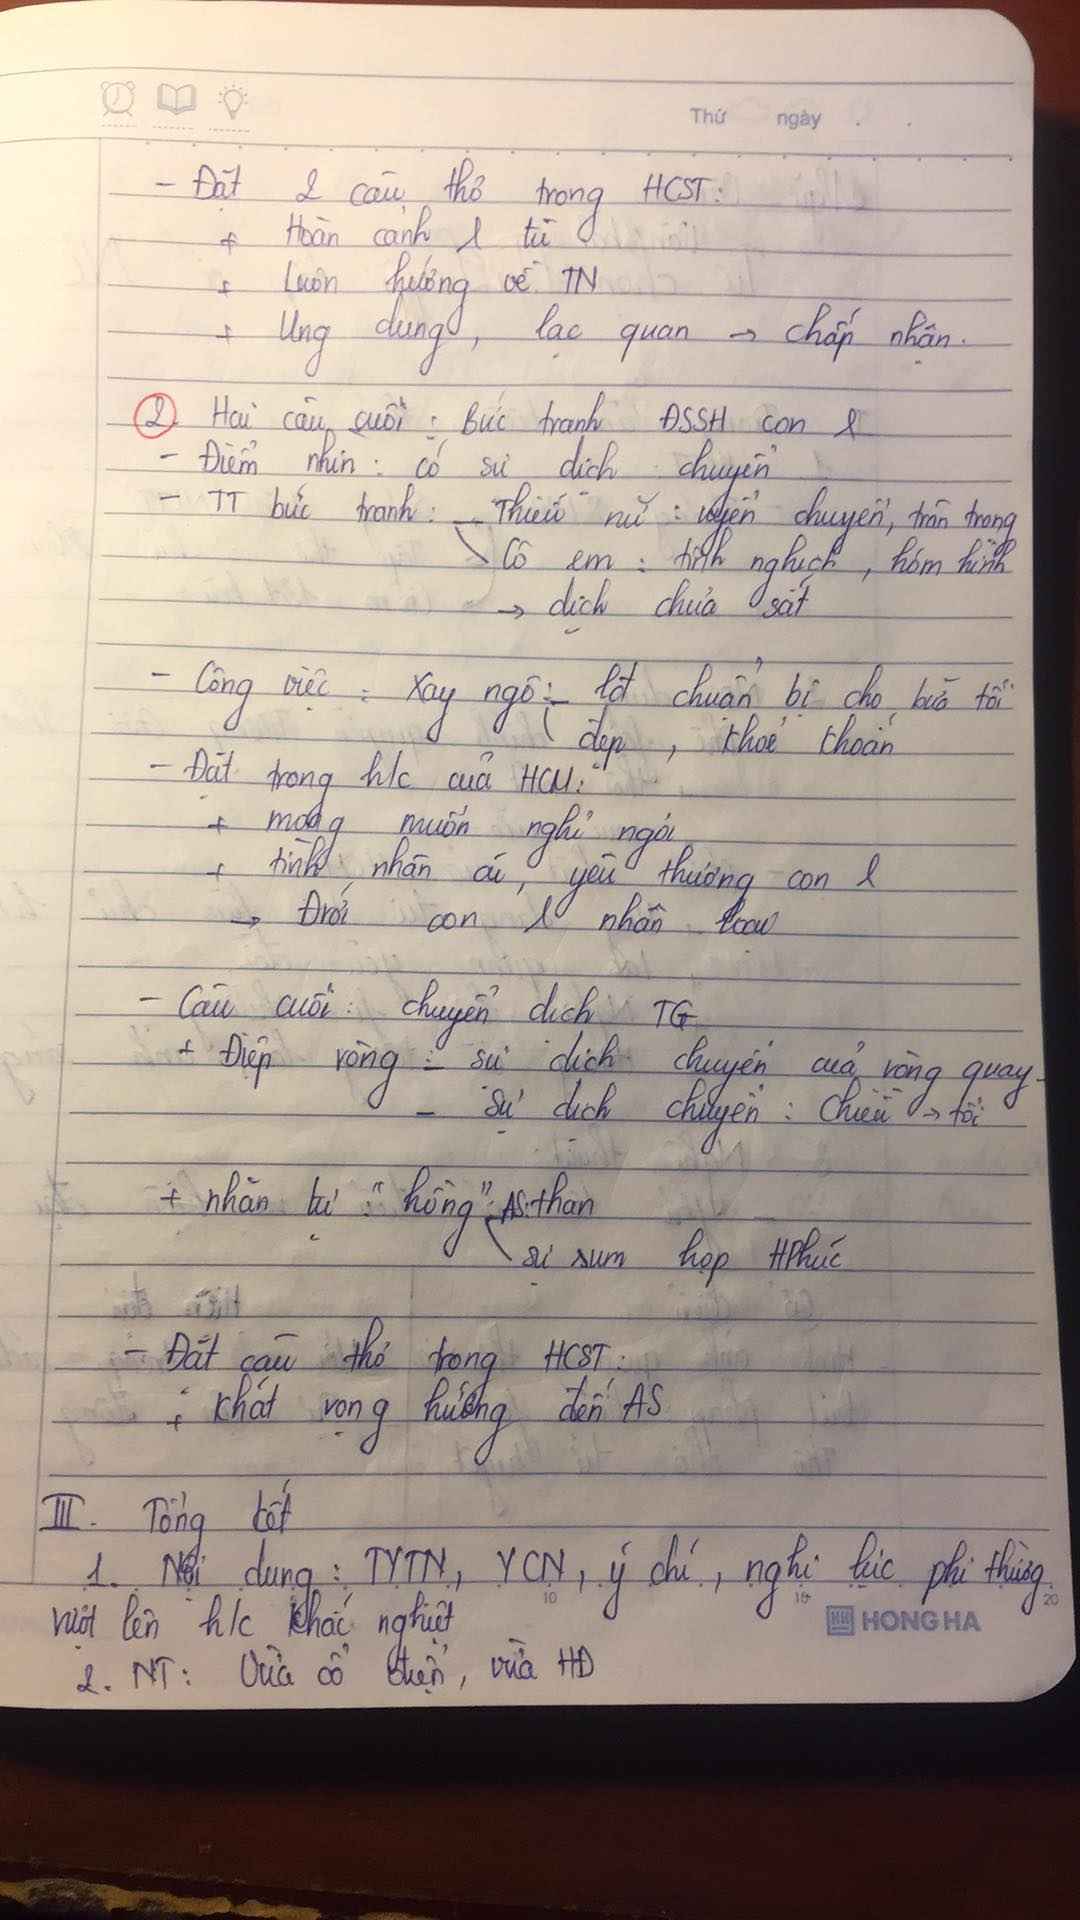 Thứ ngày
- Đặt 2 câu thơ trong HCST:
+ Hoàn cảnh l tù
+ Luôn hướng về TN
+ Ung dung, lạc quan → chấp nhận.
2 Hai câu cuối : Bức tranh ĐSSH con l
- Điểm nhìn : có sự dịch chuyển
- TT bức tranh : - Thiếu nữ : uyển chuyển, trân trọng
Cô em : tinh nghịch, hóm hỉnh
→ dịch chưa sát
- Công việc : Xay ngô : - chuẩn bị cho bữa tối
đẹp, khoẻ khoắn
- Đặt trong h/c của HCM :
+ mong muốn nghỉ ngơi
+ tình nhân ái, yêu thương con l
→ con l nhân
- Câu cuối : chuyển dịch TG
+ Điệp vòng : - sự dịch chuyển của vòng quay
- Sự dịch chuyển : Chiều → tối
+ nhãn tự : "hồng" : AS than
sự sum họp HPhúc
- Đặt câu thơ trong HCST :
+ khát vọng hướng đến AS
III. Tổng kết
1. Nội dung : TYTN, YCN, ý chí, nghị lực phi thường
vượt lên h/c khắc nghiệt
10 15 20
HONG HA
2. NT : Vừa cổ điển, vừa HĐ